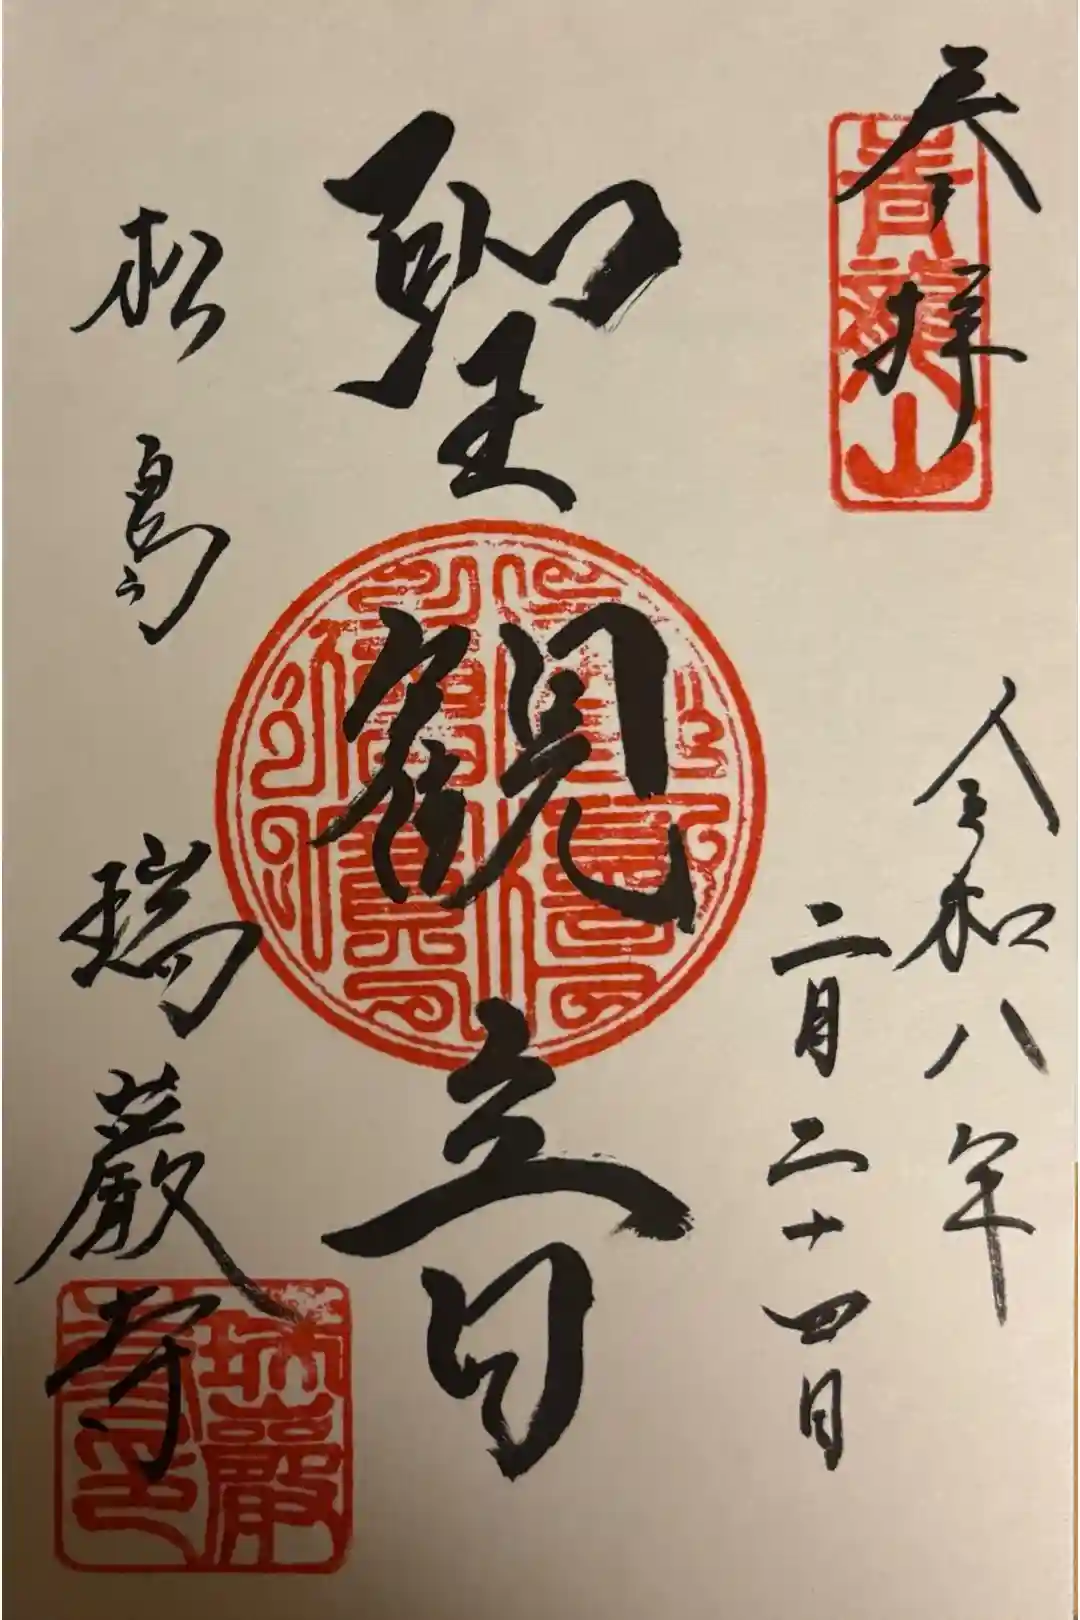 奉拝
青龍山
令和八年
二月二十四日
聖観音
松島 瑞巌寺
瑞巌寺印